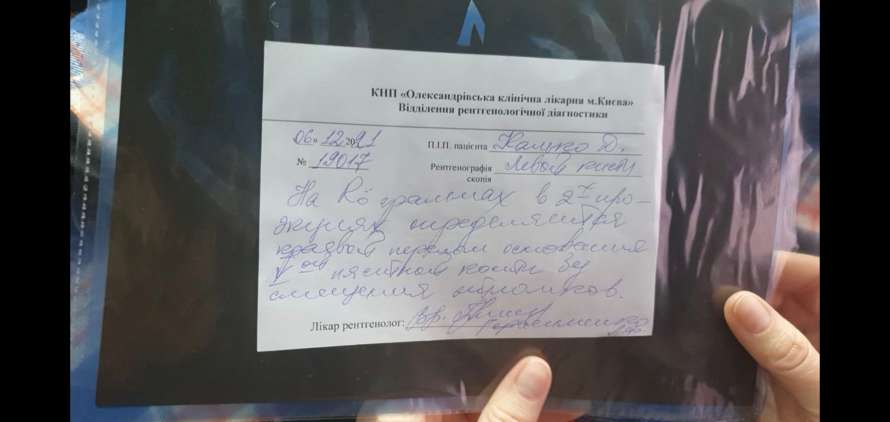 КНП «Олександрівська клінічна лікарня м.Києва»
Відділення рентгенологічної діагностики
06» 12 2021
П.І.П. пацієнта Д.
№ 19017
Рентгенографія левой кисти
скопія
На Rö граммах в 2х про-
екциях определяется
краевой перелом основания
V ой пястной кости без
смещения отломков.
Лікар рентгенолог: